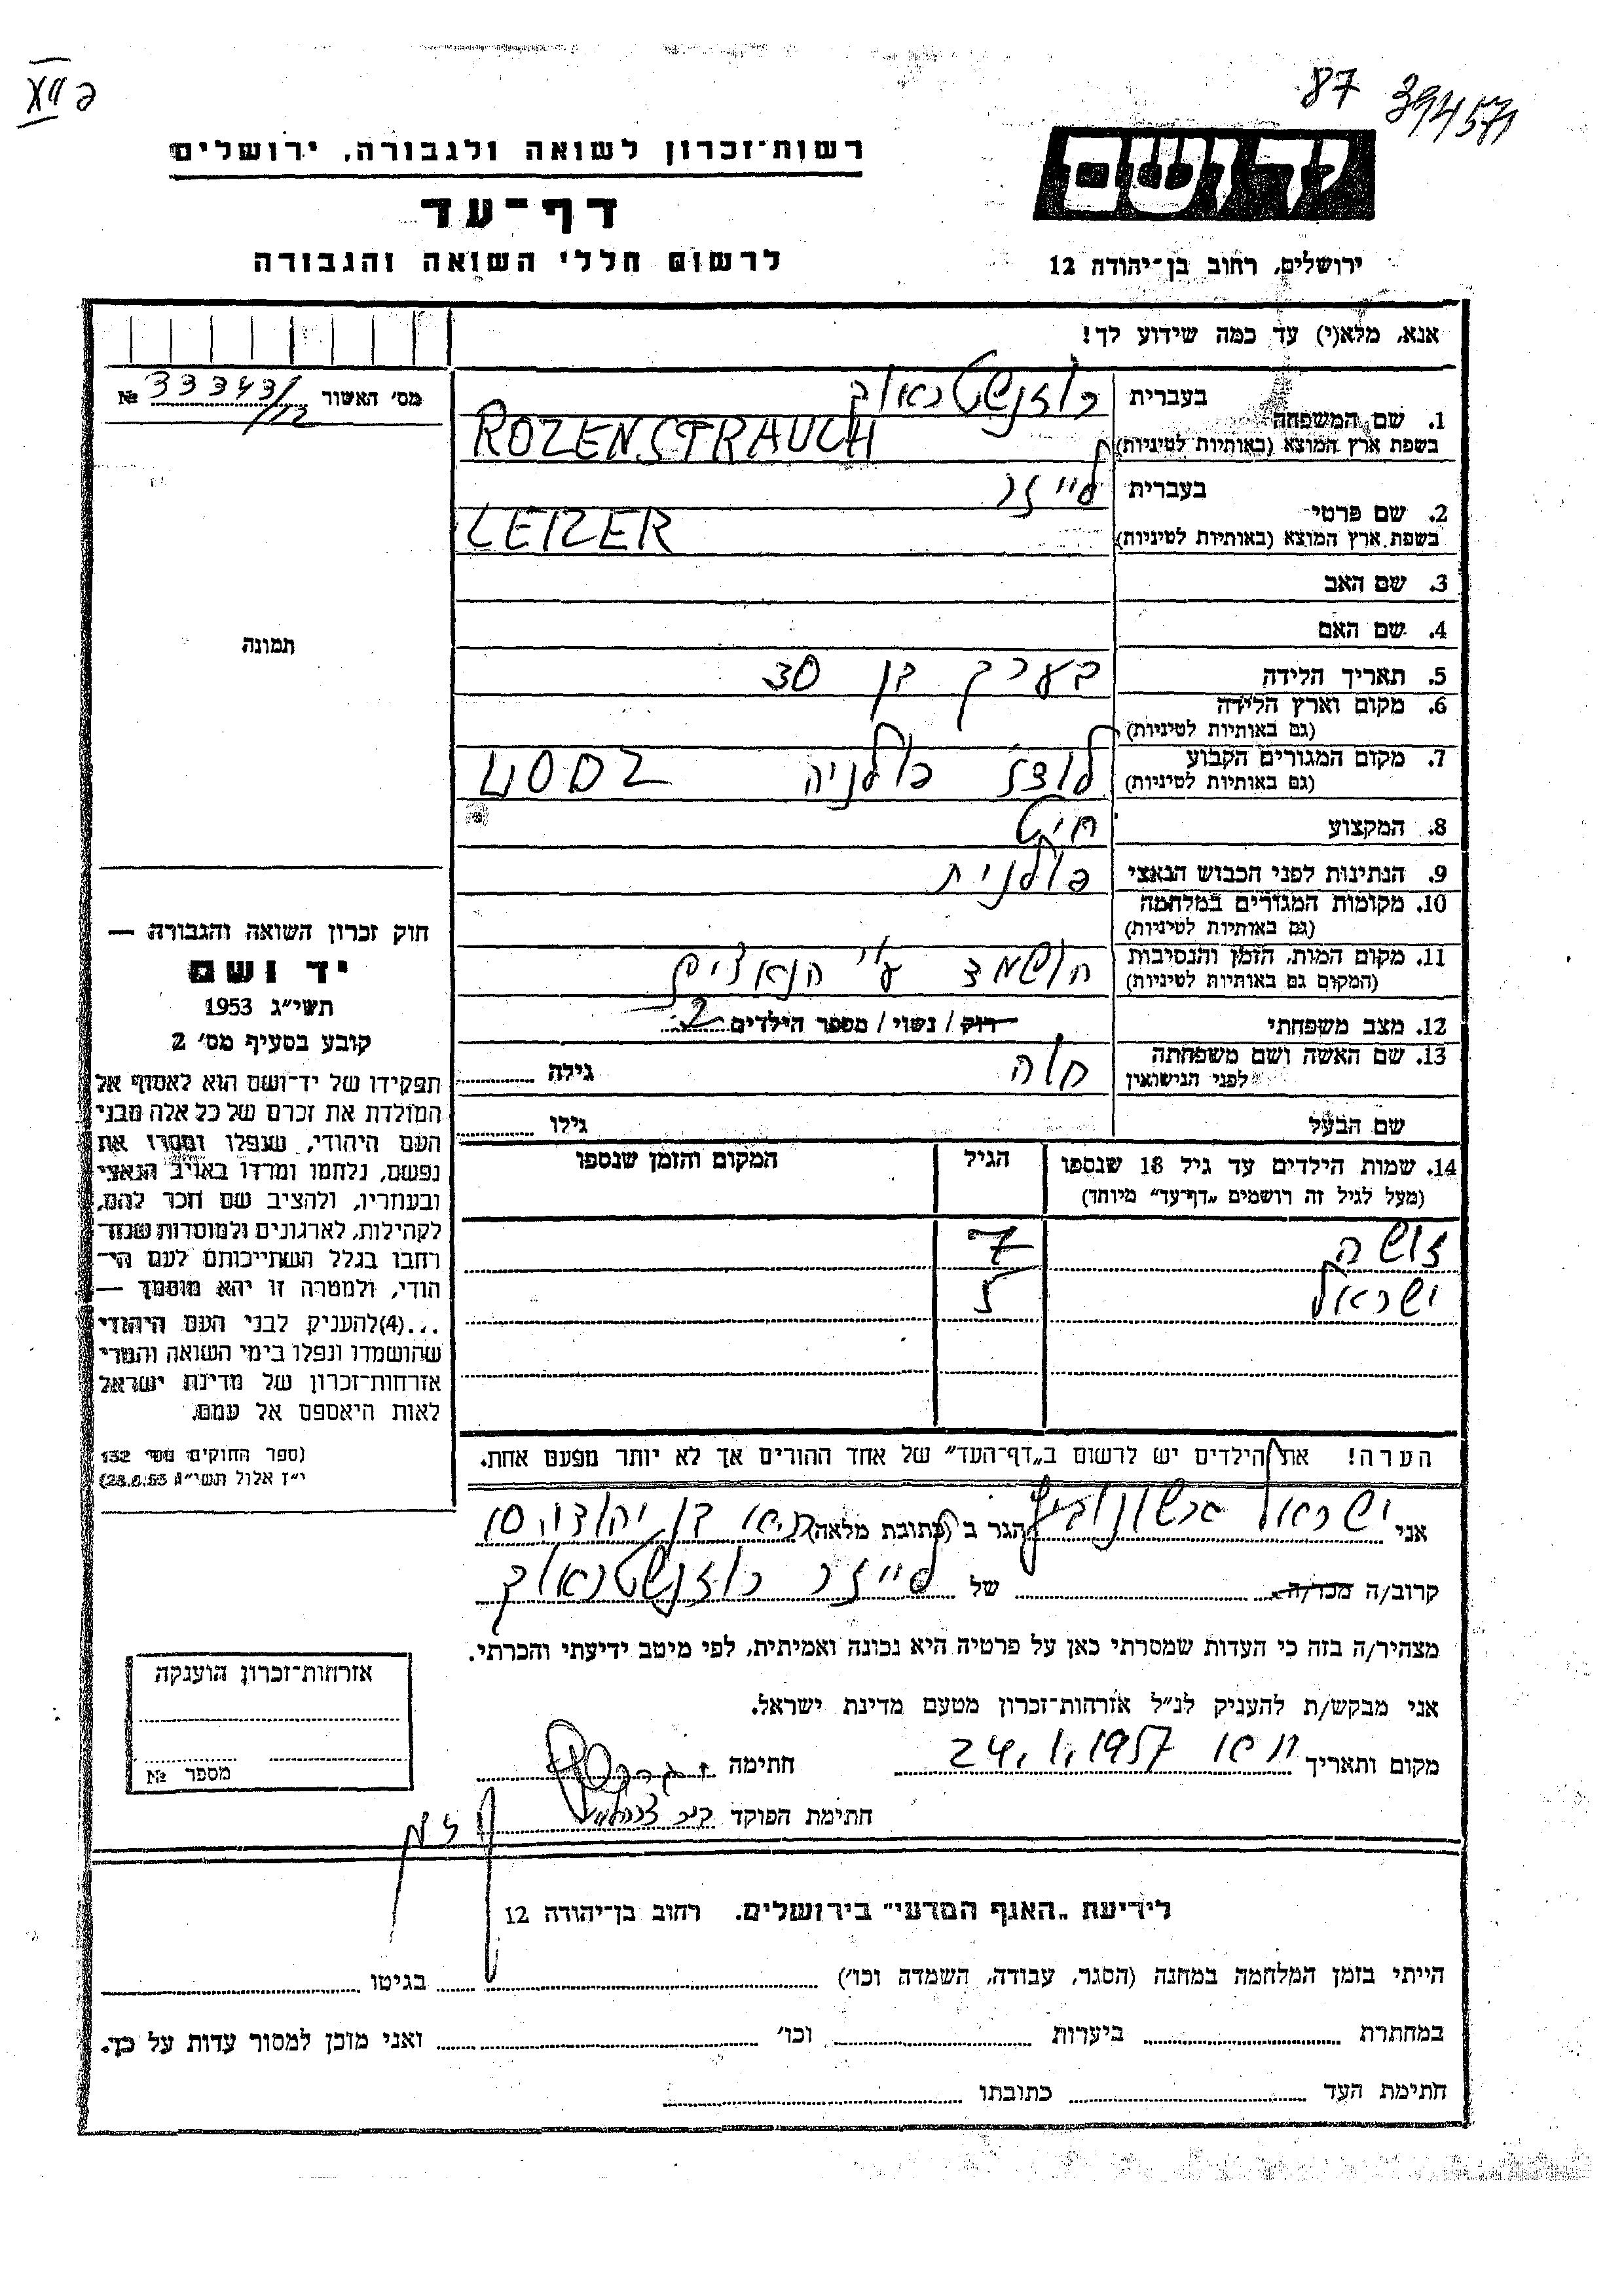 XII פ
87 394571
רשות־זכרון לשואה ולגבורה, ירושלים
דף־עד
לרשום חללי השואה והגבורה
יד ושם
ירושלים, רחוב בן־יהודה 12
אנא, מלא(י) עד כמה שידוע לך!
מס׳ האשור 33343/12 №
1. שם המשפחה בעברית רוזנשטראוך
בשפת ארץ המוצא (באותיות לטיניות) ROZENSTRAUCH
2. שם פרטי בעברית לייזר
בשפת ארץ המוצא (באותיות לטיניות) LEIZER
3. שם האב
4. שם האם
תמונה
5. תאריך הלידה בערך בן 30
6. מקום וארץ הלידה
(גם באותיות לטיניות)
7. מקום המגורים הקבוע לודז פולניה LODZ
(גם באותיות לטיניות)
8. המקצוע חיט
9. הנתינות לפני הכבוש הנאצי פולנית
10. מקומות המגורים במלחמה
(גם באותיות לטיניות)
11. מקום המות, הזמן והנסיבות הושמד ע״י הנאצים
(המקום גם באותיות לטיניות)
12. מצב משפחתי רוק / נשוי / מספר הילדים 2
13. שם האשה ושם משפחתה חוה גילה
לפני הנישואין
שם הבעל גילו
14. שמות הילדים עד גיל 18 שנספו הגיל המקום והזמן שנספו
(מעל לגיל זה רושמים „דף־עד״ מיוחד)
זושה 7
ישראל 5
הערה! את הילדים יש לרשום ב„דף־העד״ של אחד ההורים אך לא יותר מפעם אחת.
חוק זכרון השואה והגבורה —
יד ושם
תשי״ג 1953
קובע בסעיף מס׳ 2
תפקידו של יד־ושם הוא לאסוף אל
המולדת את זכרם של כל אלה מבני
העם היהודי, שנפלו ומסרו את
נפשם, נלחמו ומרדו באויב הנאצי
ובעוזריו, ולהציב שם וזכר להם,
לקהילות, לארגונים ולמוסדות שנח־
רבו בגלל השתייכותם לעם הי־
הודי, ולמטרה זו יהא מוסמך —
...(4) להעניק לבני העם היהודי
שהושמדו ונפלו בימי השואה והמרי
אזרחות־זכרון של מדינת ישראל
לאות היאספם אל עמם.
(ספר החוקים מס׳ 132
י״ז אלול תשי״ג 28.8.53)
אני ישראל גרשונוביץ הגר ב (כתובת מלאה) בן יהודה 10
קרוב/ה מכר/ה של לייזר רוזנשטראוך
מצהיר/ה בזה כי העדות שמסרתי כאן על פרטיה היא נכונה ואמיתית, לפי מיטב ידיעתי והכרתי.
אני מבקש/ת להעניק לנ״ל אזרחות־זכרון מטעם מדינת ישראל.
מקום ותאריך 24.1.1957 חתימה
חתימת הפוקד
אזרחות־זכרון הוענקה
מספר №
לידיעת „האגף המדעי״ בירושלים. רחוב בן־יהודה 12
הייתי בזמן המלחמה במחנה (הסגר, עבודה, השמדה וכו׳) בגיטו
במחתרת ביערות וכו׳ ואני מוכן למסור עדות על כך.
חתימת העד כתובתו